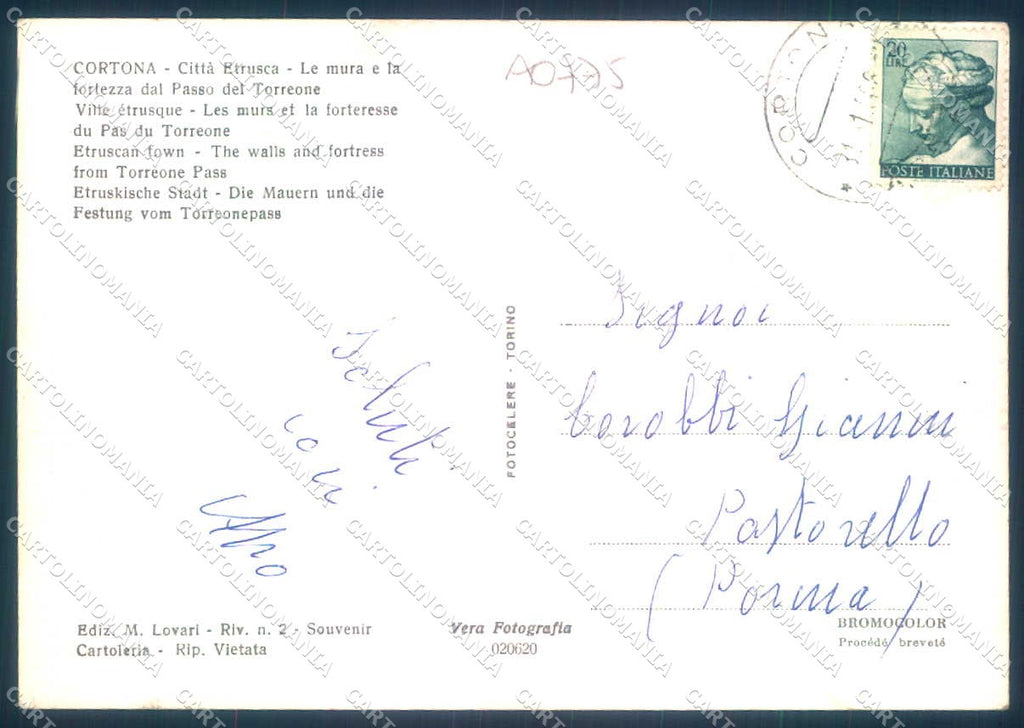 CORTONA - Città Etrusca - Le mura e la
fortezza dal Passo del Torreone
Ville étrusque - Les murs et la forteresse
du Pas du Torreone
Etruscan town - The walls and fortress
from Torreone Pass
Etruskische Stadt - Die Mauern und die
Festung vom Torreonepass
A0775
CORTONA
20
LIRE
POSTE ITALIANE
Saluti
cari
FOTOCELERE - TORINO
Signor
Corobbi Gianni
Pastorello
(Parma)
Ediz. M. Lovari - Riv. n. 2 - Souvenir
Cartoleria - Rip. Vietata
Vera Fotografia
020620
BROMOCOLOR
Procédé breveté
CARTOLINOMANIA